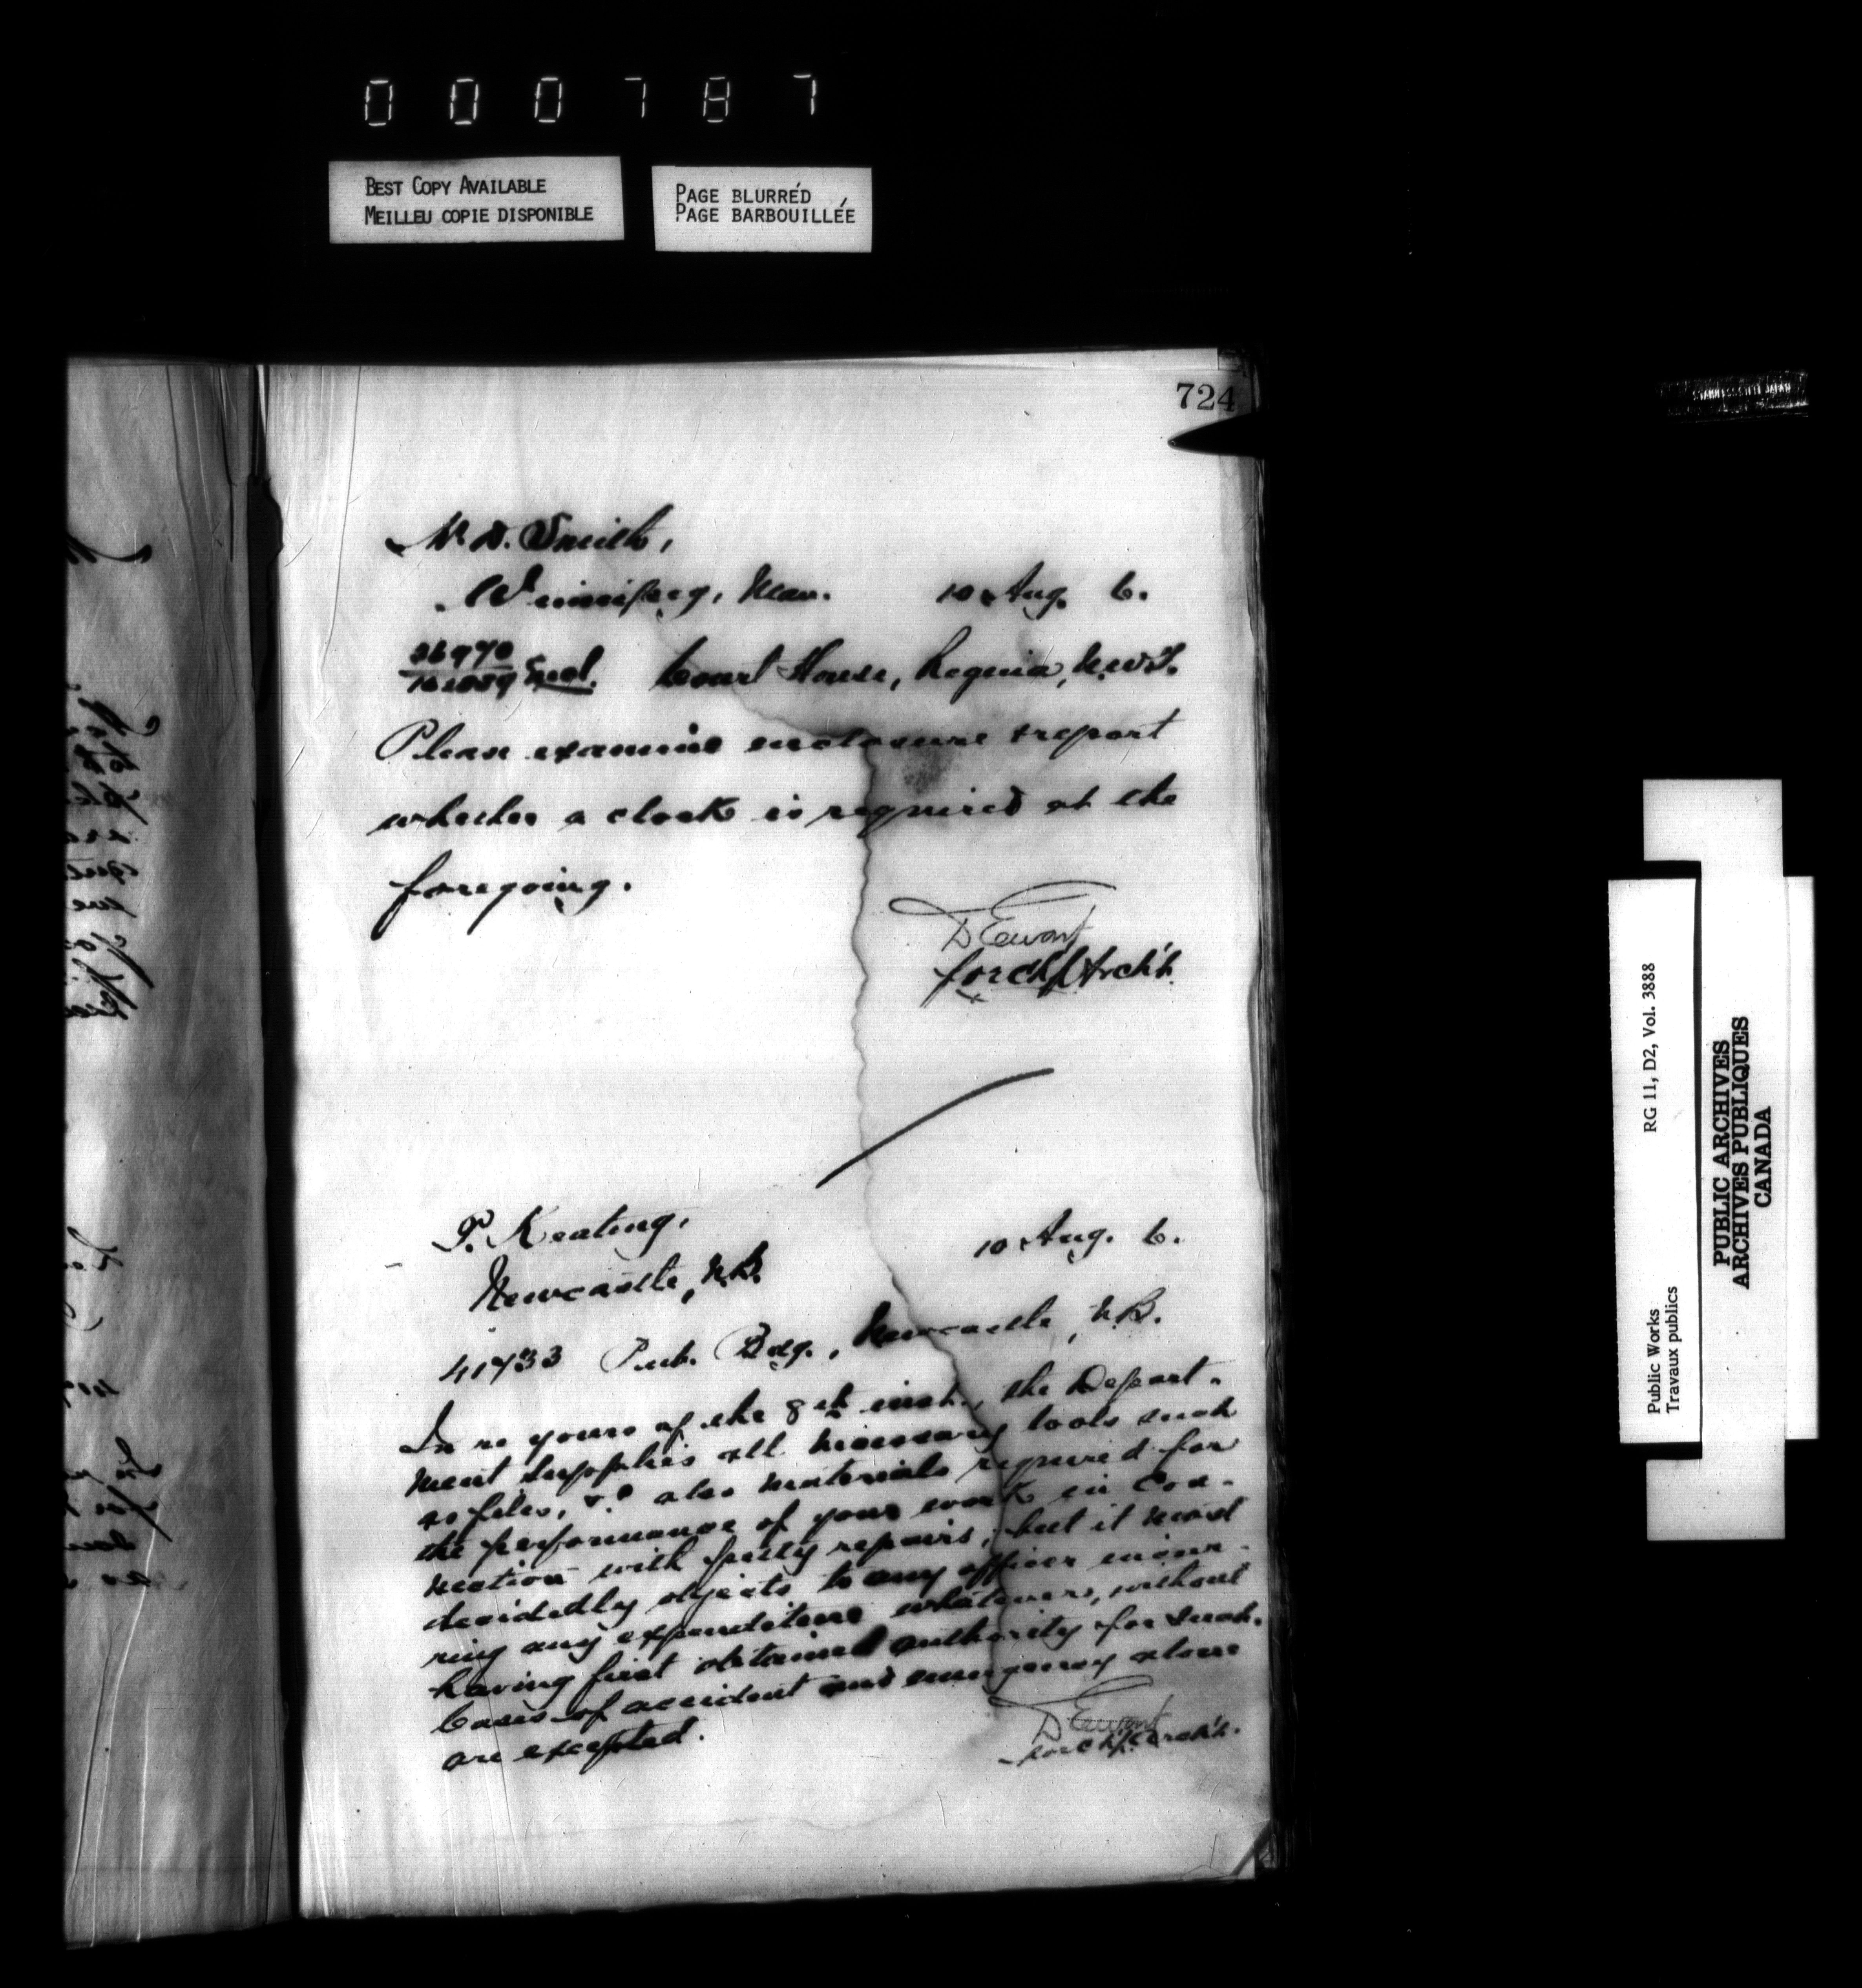 000787
BEST COPY AVAILABLE
MEILLEU COPIE DISPONIBLE
PAGE BLURRÉD
PAGE BARBOUILLÉE
724
Smith,
Winnipeg, Man. 10 Aug. 6.
Encl. Court House, Regina, N.W.T.
Please examine enclosure & report
whether a clock is required at the
foregoing.
D Ewart
for Ch'f Arch't.
P. Keating, 10 Aug. 6.
Newcastle, N.B.
41733 Pub. Bdg., Newcastle, N.B.
In re yours of the 8th inst., the Depart-
ment supplies all necessary tools such
as files, &c also materials required for
the performance of your work in con-
nection with petty repairs; but it most
decidedly objects to any officer incur-
ring any expenditure whatever, without
having first obtained authority for such.
Cases of accident and emergency alone
are excepted.
D Ewart
for Ch'f Arch't.
RG 11, D2, Vol. 3888
Public Works
Travaux publics
PUBLIC ARCHIVES
ARCHIVES PUBLIQUES
CANADA